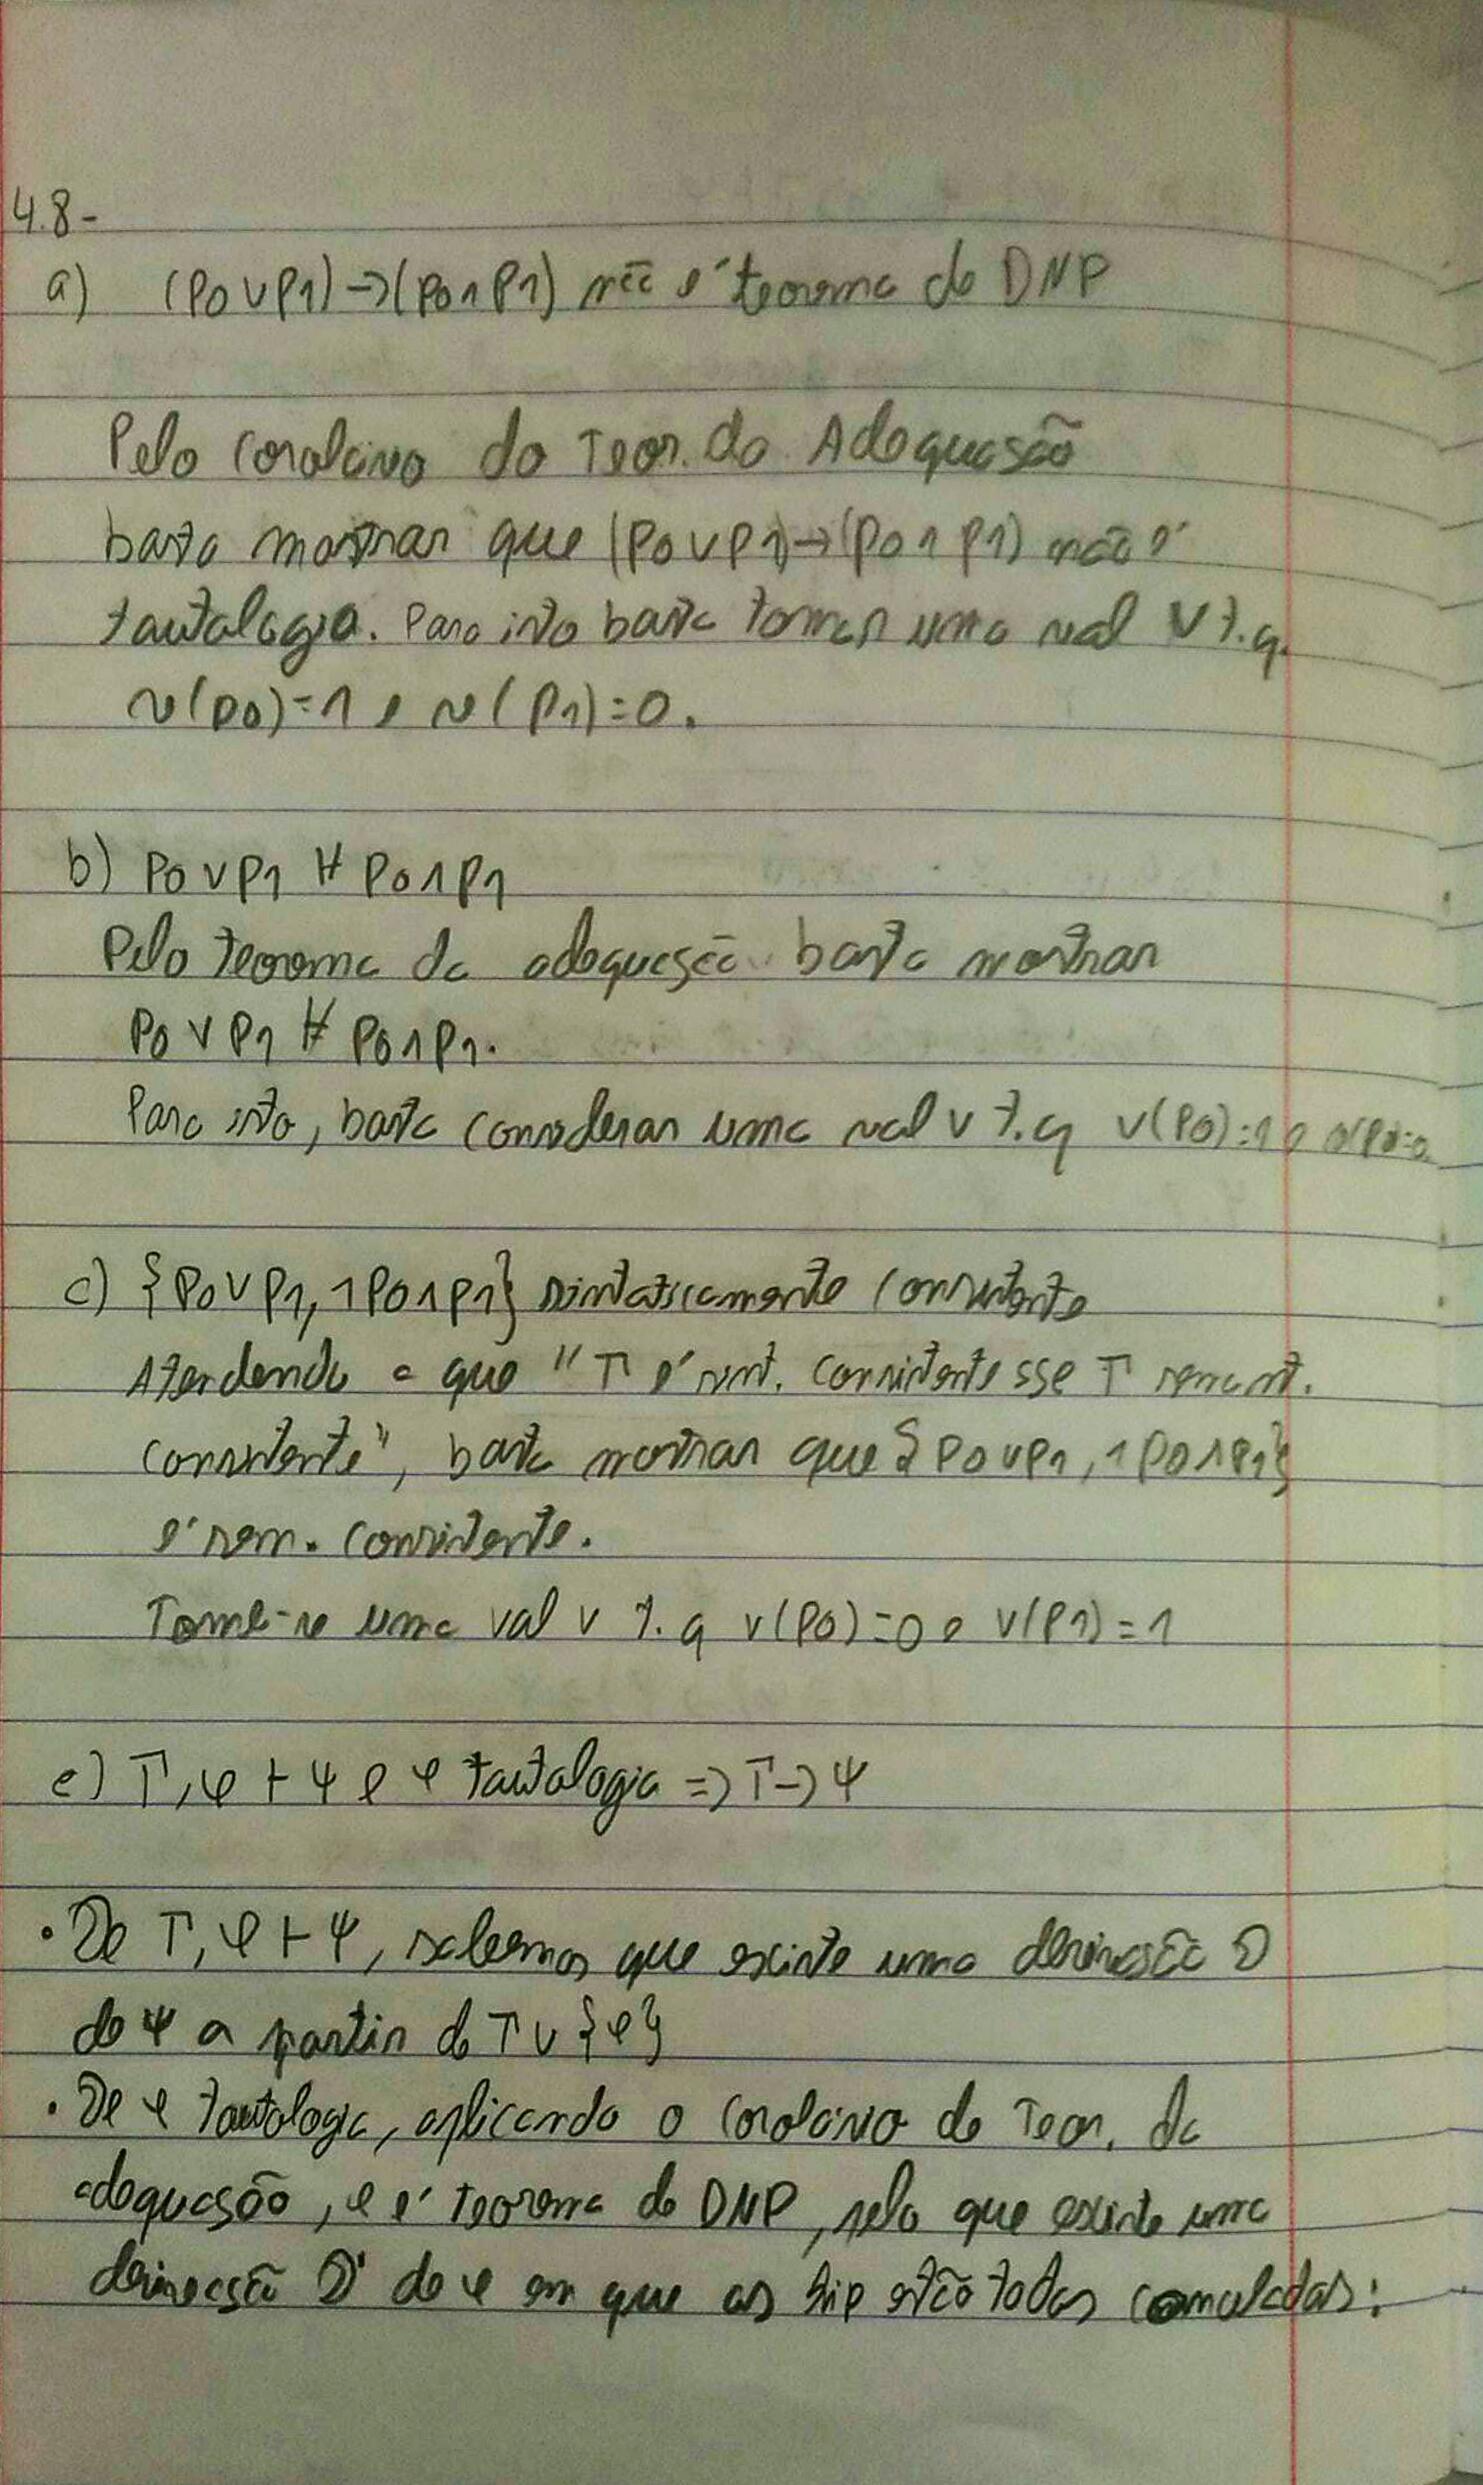 4.8-
a) (p0 ∨ p1) → (p0 ∧ p1) não é teorema de DNP
Pelo corolário do Teor. da Adequasão
basta mostrar que (p0 ∨ p1) → (p0 ∧ p1) não é
tautologia. Para isto basta tomar uma val v t.q.
v(p0)=1 e v(p1)=0.
b) p0 ∨ p1 ⊬ p0 ∧ p1
Pelo teorema da adequasão basta mostrar
p0 ∨ p1 ⊭ p0 ∧ p1.
Para isto, basta considerar uma val v t.q v(p0)=1 e v(p1)=0.
c) {p0 ∨ p1, ¬p0 ∧ p1} sintaticamente consistente
Atendendo a que "Γ é sint. consistente sse Γ semant.
consistente", basta mostrar que {p0 ∨ p1, ¬p0 ∧ p1}
é sem. consistente.
Tome-se uma val v t.q v(p0)=0 e v(p1)=1
e) Γ, φ ⊢ ψ e φ tautologia => Γ → ψ
• De Γ, φ ⊢ ψ, sabemos que existe uma derivasão D
de ψ a partir de Γ ∪ {φ}
• De φ tautologia, aplicando o corolário do Teor. da
adequasão, φ é teorema de DNP, pelo que existe uma
derivasão D' de φ em que as hip estão todas canceladas: